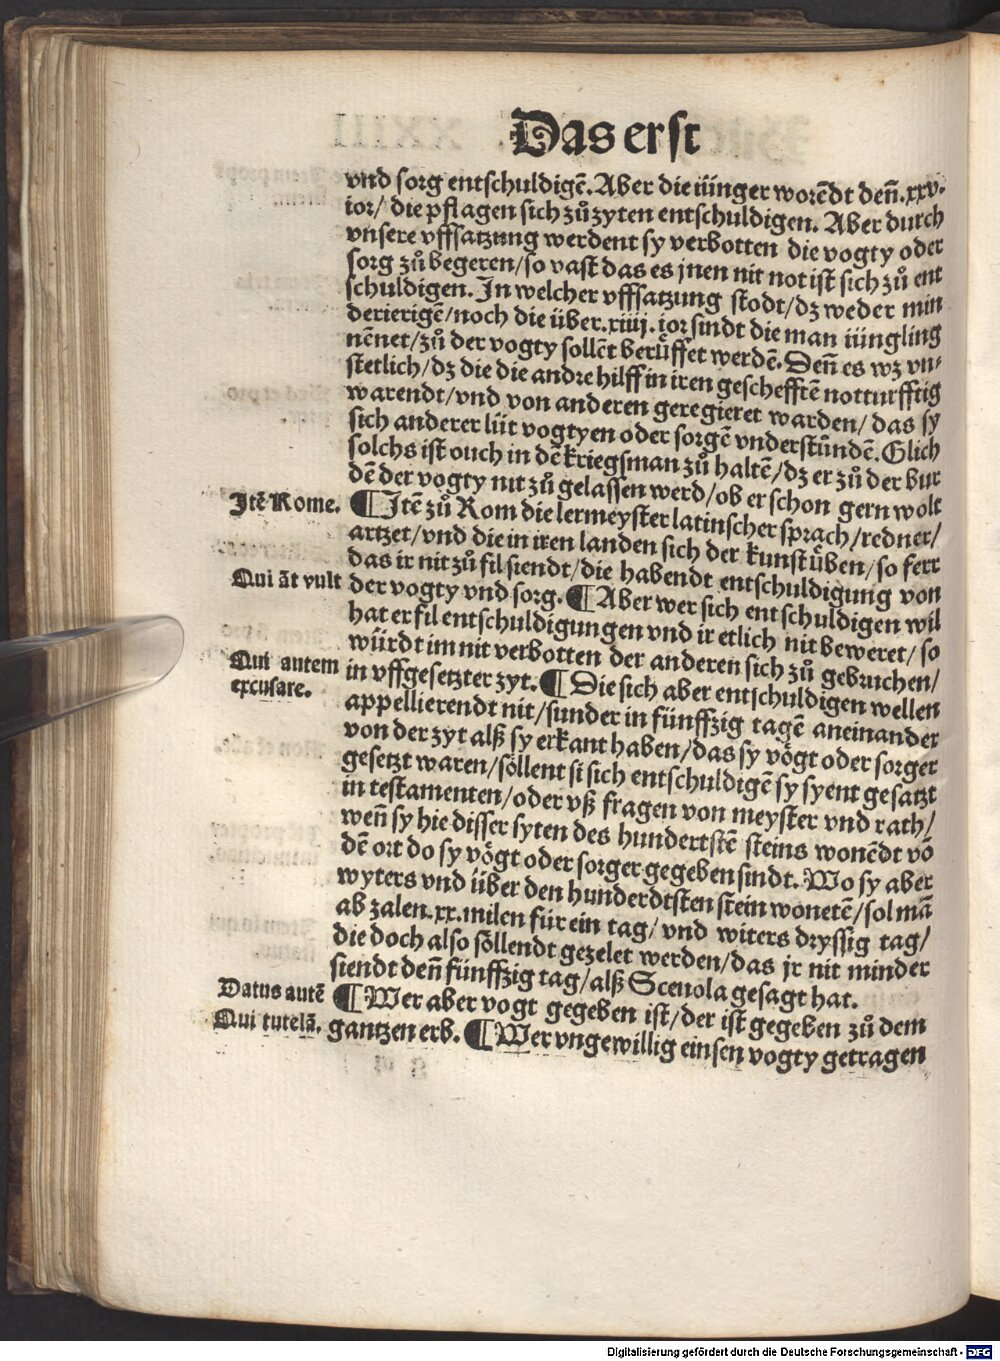 Das erst
vnd sorg entschuldigē. Aber die iünger worēdt deñ .xxv.
ior/ die pflagen sich zů zyten entschuldigen. Aber durch
vnsere vffsatzung werdent sy verbotten die vogty oder
sorg zů begeren/so vast das es jnen nit not ist sich zů ent
schuldigen. In welcher vffsatzung stodt/dz weder min
derierigē/noch die über .xiiij. ior sindt die man iüngling
nēnet/zů der vogty sollēt berüffet werdē. Deñ es wz vn⸗
stetlich/dz die die andre hilff in iren geschefftē notturfftig
warendt/vnd von anderen geregieret warden/ das sy
sich anderer lüt vogtyen oder sorgē vnderstůndē. Glich
solchs ist ouch in dē kriegsman zů haltē/dz er zů der bur
dē der vogty nit zů gelassen werd/ob er schon gern wolt
Itē Rome. ¶ Itē zů Rom die lermeyster latinscher sprach/redner/
artzet/vnd die in iren landen sich der kunst üben/so ferr
das ir nit zů fil siendt/die habendt entschuldigung von
Qui āt vult der vogty vnd sorg. ¶ Aber wer sich entschuldigen wil
hat er fil entschuldigungen vnd ir etlich nit beweret/ so
würdt im nit verbotten der anderen sich zů gebruchen/
Qui autem in vffgesetzter zyt. ¶ Die sich aber entschuldigen wellen
excusare. appellierendt nit/sunder in fünffzig tagē aneinander
von der zyt alß sy erkant haben/das sy vögt oder sorger
gesetzt waren/söllent si sich entschuldigē sy syent gesatzt
in testamenten/oder vß fragen von meyster vnd rath/
weñ sy hie disser syten des hundertstē steins wonēdt vō
dē ort do sy vögt oder sorger gegeben sindt. Wo sy aber
wyters vnd über den hunderdtsten stein wonetē/sol mā
ab zalen .xx. milen für ein tag/ vnd witers dryssig tag/
die doch also söllendt gezelet werden/das jr nit minder
siendt deñ fünffzig tag/alß Sceuola gesagt hat.
Datus autē ¶ Wer aber vogt gegeben ist/der ist gegeben zů dem
Qui tutelā. gantzen erb. ¶ Wer vngewillig ein sen vogty getragen
Digitalisierung gefördert durch die Deutsche Forschungsgemeinschaft - DFG